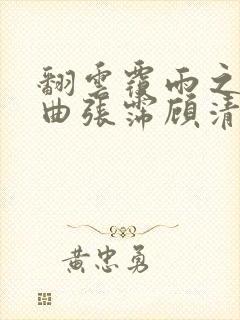 翻雲覆雨之
曲張霈顧清
黃忠勇